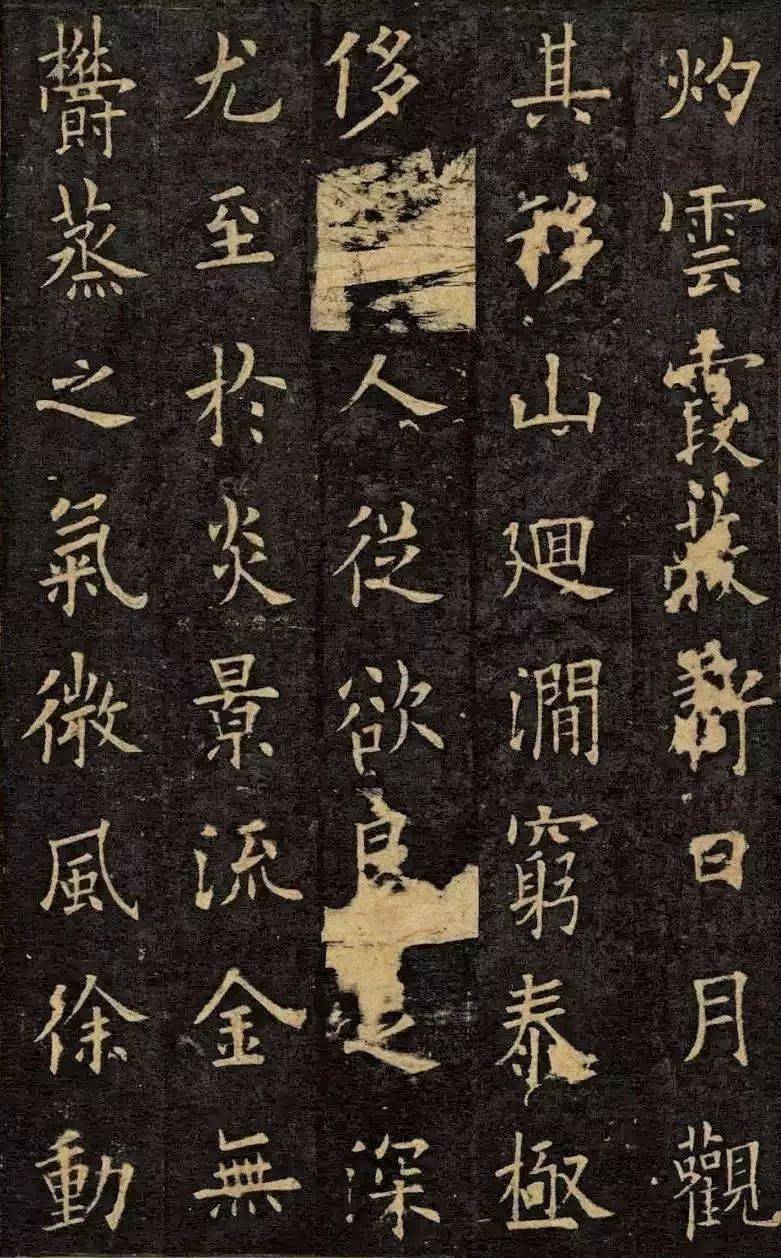 灼雲霞蔽虧日月觀
其移山廻澗窮泰極
侈人從欲良深
尤至於炎景流金無
欝蒸之氣微風徐動